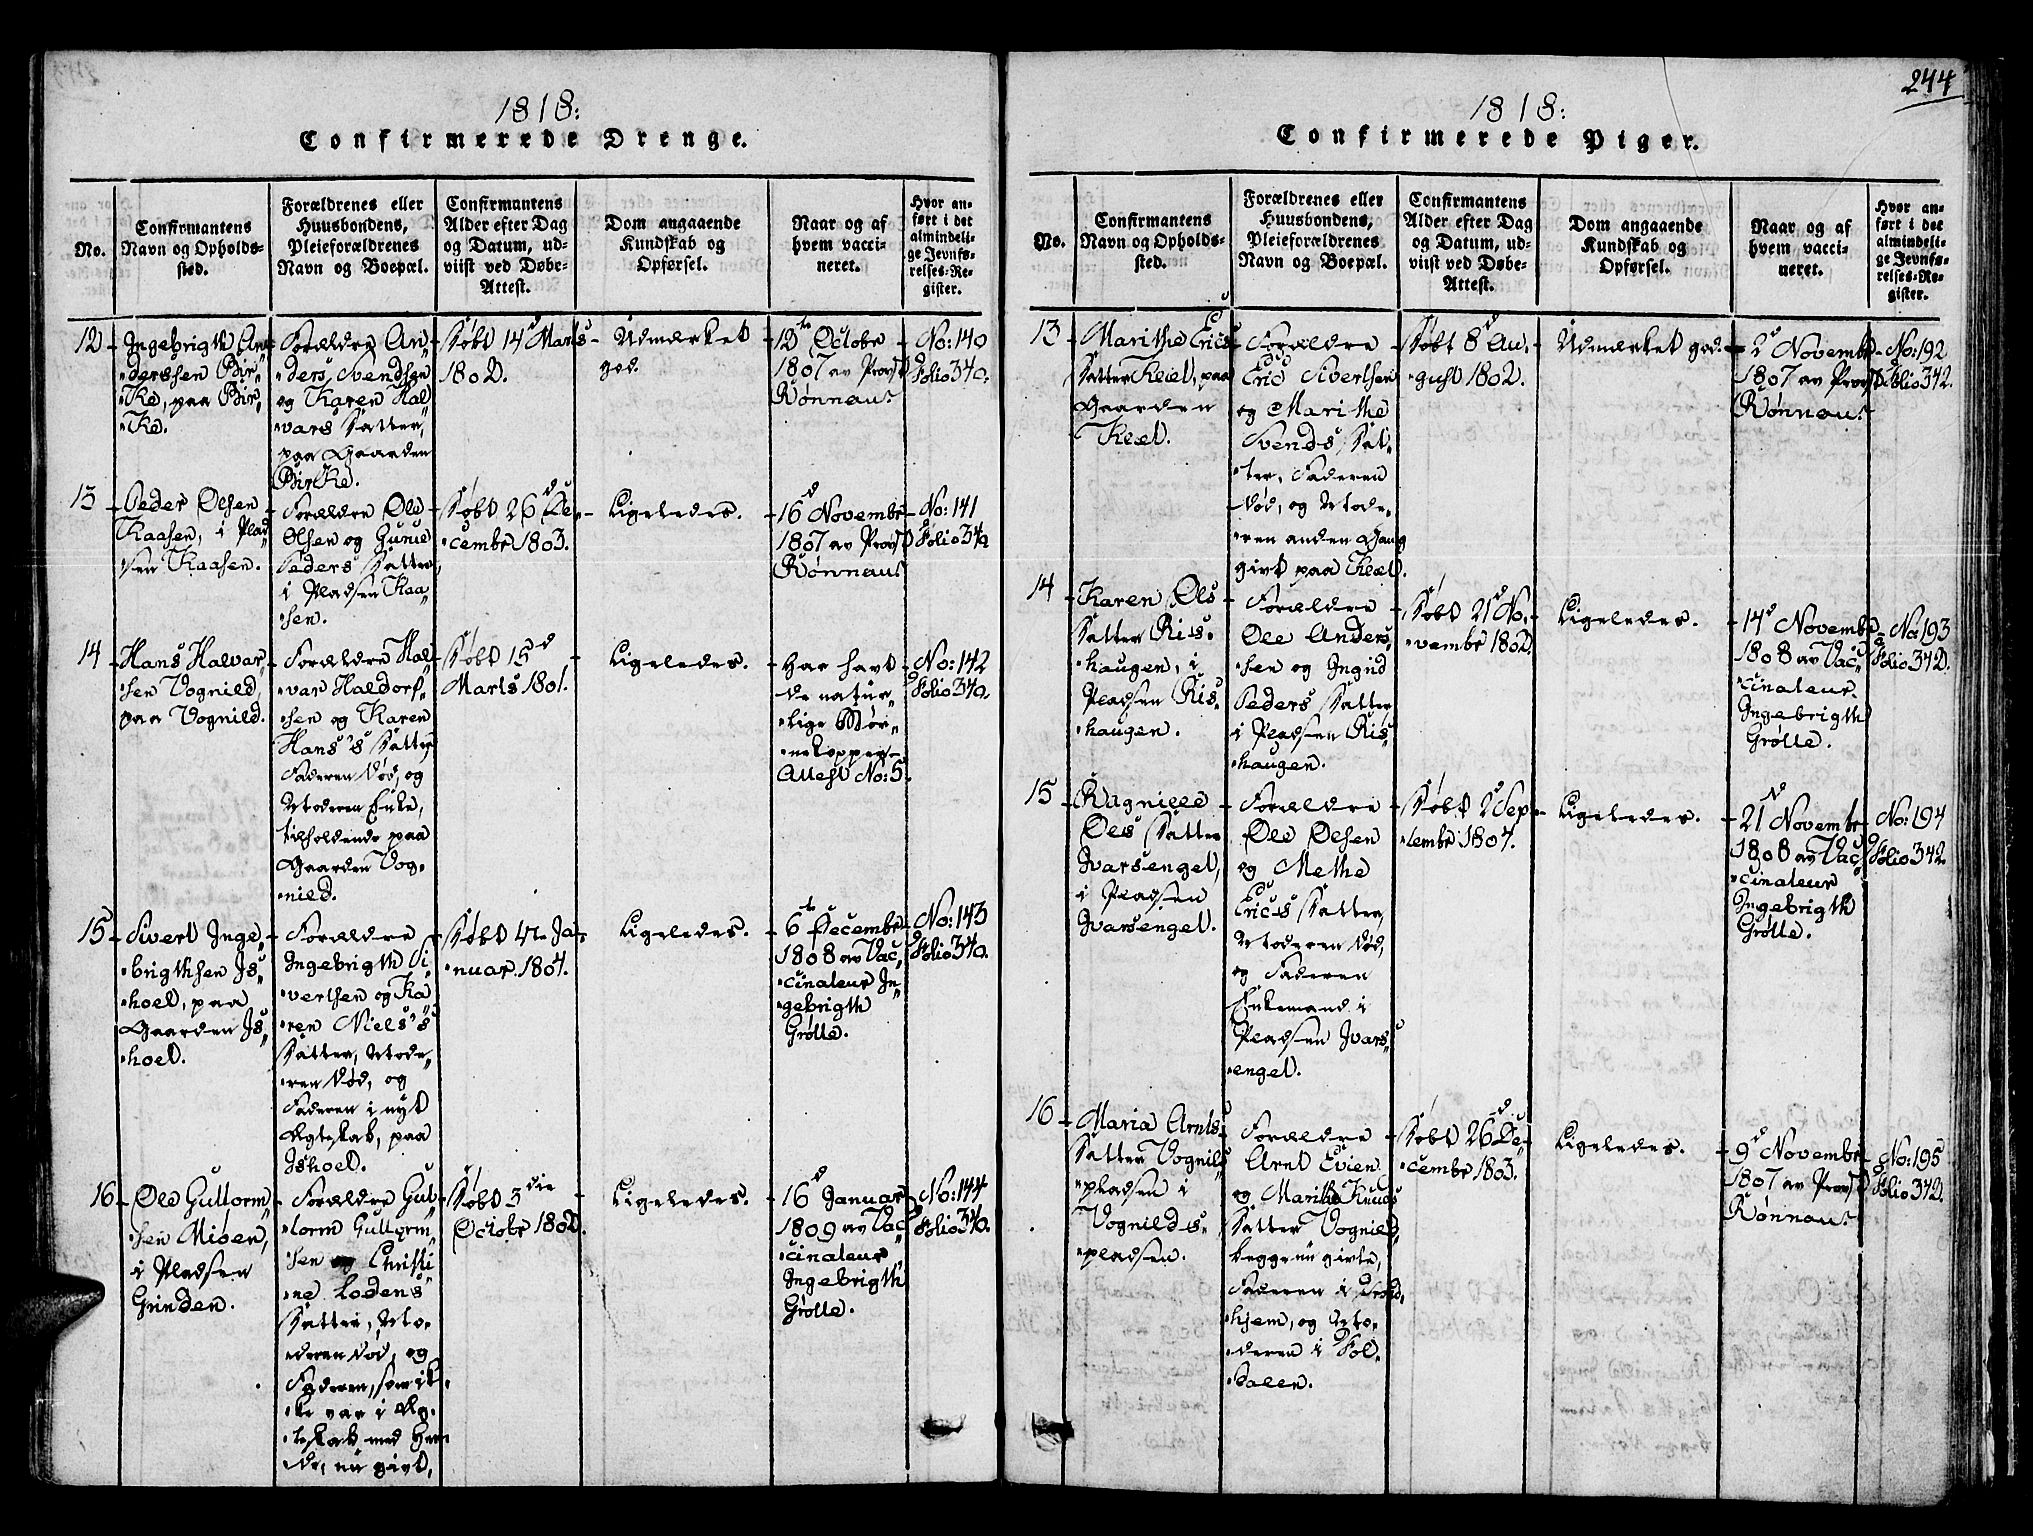 1818:
Confirmerede Drenge.
No.
Confirmantens
Navn og Opholds-
sted.
Forældrenes eller
Huusbondens,
Pleieforældrenes
Navn og Boepæl.
Confirmantens
Alder efter Dag
og Datum, ud-
viist ved Døbe-
Attest.
Dom angaaende
Kundskab og
Opførsel.
Naar og af
hvem vacci-
neret.
Hvor an-
ført i det
almindeli-
ge Jevnfø-
relses-Re-
gister.
12
Ingebrigth An-
derssen Bir-
ke, paa Bir-
ke.
Forældre An-
ders Svendsen
og Karen Hal-
vars Datter,
paa Gaarden
Birke.
Døbt 14d Marts
1802.
Udmærket
god.
12te Octobr
1807 av Provst
Rønnau.
No: 140
Folio 340.
13
Peder Olsen
Kaasen, i Plad-
sen Kaasen.
Forældre Ole
Olsen og Gunil
Peders Datter
i Pladsen Kaa-
sen.
Døbt 26d De-
cembr 1803.
Ligeledes.
16d Novembr
1807 av Provst
Rønnau.
No: 141
Folio 340
14
Hans Halvar-
sen Vognild,
paa Vognild.
Forældre Hal-
var Haldors-
sen og Karen
Hans's Datter,
Faderen død, og
Moderen Enke,
tilholdende paa
Gaarden Vog-
nild.
Døbt 15d
Marts 1801.
Ligeledes.
Har havt
de natur-
lige Bør-
nekopper-
Attest No: 5.
No: 142
Folio 340.
15
Sivert Inge-
brigthsen Is-
hoel, paa
Gaarden Is-
hoel.
Forældre
Ingebrigth Si-
vertsen og Ka-
ren Niels's
Datter, Mode-
ren død, og
Faderen i nyt
Ægteskab, paa
Ishoel.
Døbt Ja-
nuar. 1804.
Ligeledes.
6te Decembr
1808 av Vac-
cinateur In-
gebrigth
Grøtte.
No: 143
Folio 340.
16
Ole Guttorm-
sen Miøen,
i Pladsen
Grinden.
Forældre Gut-
torm Guttorm-
sen og Christi-
ne Lodens
Datter, Mo-
deren død, og
Faderen, som ik-
ke var i Æg-
teskab med Hen-
de, nu givt,
Døbt 3die
Octobr 1802.
Ligeledes.
16d Januar
1809 av Vac-
cinateur
Ingebrigth
Grøtte.
No: 144
Folio 340.
244
1818:
Confirmerede Piger.
No.
Confirmantens
Navn og Opholds-
sted.
Forældrenes eller
Huusbondens,
Pleieforældrenes
Navn og Boepæl.
Confirmantens
Alder efter Dag
og Datum, ud-
viist ved Døbe-
Attest.
Dom angaaende
Kundskab og
Opførsel.
Naar og af
hvem vacci-
neret.
Hvor an-
ført i det
almindeli-
ge Jevnfø-
relses-Re-
gister.
13
Marithe Erics
Datter Keel, paa
Gaarden
Keel.
Forældre
Eric Sivertsen
og Marithe
Svends Dat-
ter, Faderen
død, og Mode-
ren anden Gang
givt paa Keel.
Døbt 8d Au-
gust 1802.
Udmærket god.
2d Novembr
1807 av Provst
Rønnau.
No: 192
Folio 342.
14
Karen Ols
Datter Ris-
haugen, i
Pladsen Ris-
haugen.
Forældre
Ole Anders-
sen og Ingrid
Peders Datter
i Pladsen Ris-
haugen.
Døbt 21d No-
vembr 1802.
Ligeledes.
14d Novembr
1808 av Vac-
cinateur
Ingebrigth
Grøtte.
No: 193
Folio 342.
15
Ragnille
Ols Datter
Ivarsengel,
i Pladsen
Ivarsengel.
Forældre
Ole Olsen
og Methe
Erics Datter,
Moderen død,
og Faderen
Enkemand i
Pladsen Ivars-
engel.
Døbt 2d Sep-
tembr 1804.
Ligeledes.
21d Novembr
1808 av Vac-
cinateur
Ingebrigth
Grøtte.
No: 194
Folio 342.
16
Maria Arnts
Datter Vognild-
pladsen i
Vognilds-
pladsen.
Forældre
Arnt Evien
og Marithe Knuds
Datter Vognild,
begge nu givte,
Faderen i Trond-
hjem, og Mo-
deren i Fol-
dalen.
Døbt 26d De-
cembr 1803.
Ligeledes.
9d Novembr
1807 av Provst
Rønnau.
No: 195
Folio 342.